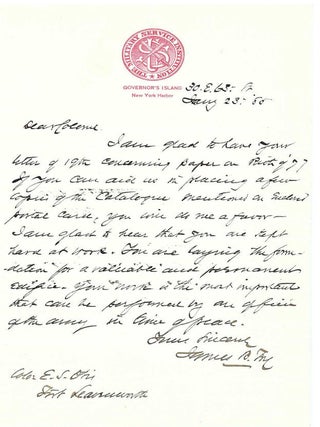 THE MILITARY SERVICE INSTITUTION
GOVERNOR'S ISLAND
New York Harbor
30. E. 63d St.
Jany 23d '85
Dear Colonel
I am glad to have your
letter of 19th concerning paper on Riots of '77
If you can aid us in placing a few
copies of the Catalogue mentioned on enclosed
postal card, you will do me a favor—
I am glad to hear that you are kept
hard at work. You are laying the foun-
dation for a valuable and permanent
edifice. Your work is the most important
that can be performed by an officer
of the army in time of peace.
Yours Sincerely
James B. Fry
Colon E. S. Otis
Fort Leavenworth